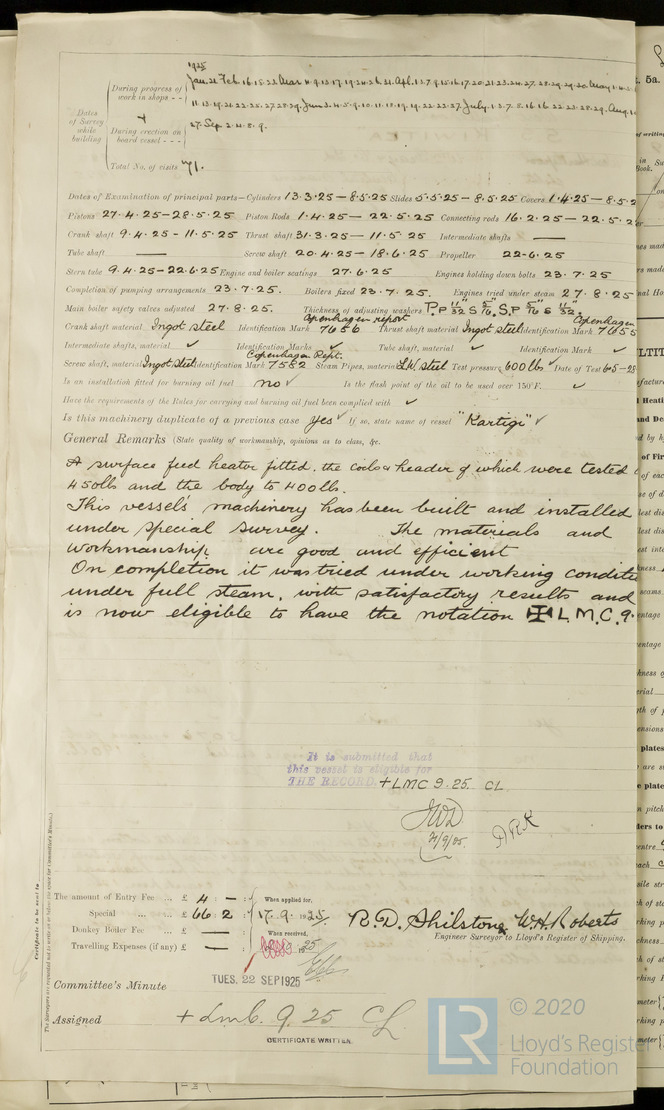 1925
Jan. 21 Feb. 16.18.22 Mar 11.9.13.17.19.24.26.31. Apl. 1.3.7.9.15.16.17.20.21.23.24.27.28.29.30. May 1.4.
During progress of work in shops - -
11.13.19.21.22.25.27.28.29. June 3.4.5.9.10.11.18.19.22.23.27. July. 1.3.7.8.16.22.23.28.29. Aug.
Dates of Survey while building
During erection on board vessel - - -
27. Sep. 2.4.8.9.
Total No. of visits 71.
Dates of Examination of principal parts—Cylinders 13.3.25 — 8.5.25 Slides 5.5.25 — 8.5.25 Covers 1.4.25 — 8.5.2
Pistons 27.4.25 — 28.5.25 Piston Rods 1.4.25 — 22.5.25 Connecting rods 16.2.25 — 22.5.2
Crank shaft 9.4.25 - 11.5.25 Thrust shaft 31.3.25 — 11.5.25 Intermediate shafts —
Tube shaft — Screw shaft 20.4.25 — 18.6.25 Propeller 22.6.25
Stern tube 9.4.25 — 22.6.25 Engine and boiler seatings 27.6.25 Engines holding down bolts 23.7.25
Completion of pumping arrangements 23.7.25. Boilers fixed 23.7.25. Engines tried under steam 27.8.25
Main boiler safety valves adjusted 27.8.25. Thickness of adjusting washers P.P 11/32 S 5/16, S.P 5/16 S 11/32
Copenhagen report Copenhagen
Crank shaft material Ingot steel Identification Mark 7656 Thrust shaft material Ingot steel Identification Mark 7655
Intermediate shafts, material ✓ Identification Marks ✓ Tube shaft, material ✓ Identification Mark ✓
Copenhagen Rept.
Screw shaft, material Ingot Steel Identification Mark 7582 Steam Pipes, material L.W. steel Test pressure 600 lb ✓ Date of Test 6.5-28
Is an installation fitted for burning oil fuel no ✓ Is the flash point of the oil to be used over 150°F. ✓
Have the requirements of the Rules for carrying and burning oil fuel been complied with ✓
Is this machinery duplicate of a previous case yes ✓ If so, state name of vessel "Kartigi" ✓
General Remarks (State quality of workmanship, opinions as to class, &c.
A surface feed heater fitted, the coils & header of which were tested
450lbs and the body to 400lbs.
This vessel's machinery has been built and installed
under special survey. The materials and
workmanship are good and efficient
On completion it was tried under working condit
under full steam, with satisfactory results and
is now eligible to have the notation ✠ L.M.C. 9.
It is submitted that
this vessel is eligible for
THE RECORD. + LMC 9.25. CL
JWD
ARK
The amount of Entry Fee ... £ 4 : — : When applied for,
Special ... £ 66 : 2 : 17.9.1925
Donkey Boiler Fee ... £ — When received,
Travelling Expenses (if any) £ — 25
R.D. Shilstone, W.H. Roberts
Engineer Surveyor to Lloyd's Register of Shipping.
Committee's Minute TUES. 22 SEP 1925
Assigned + LMC. 9.25 CL
CERTIFICATE WRITTEN.
Certificate to be sent to
The Surveyors are requested not to write on or below the space for Committee's Minute.
LR
© 2020
Lloyd's Register
Foundation